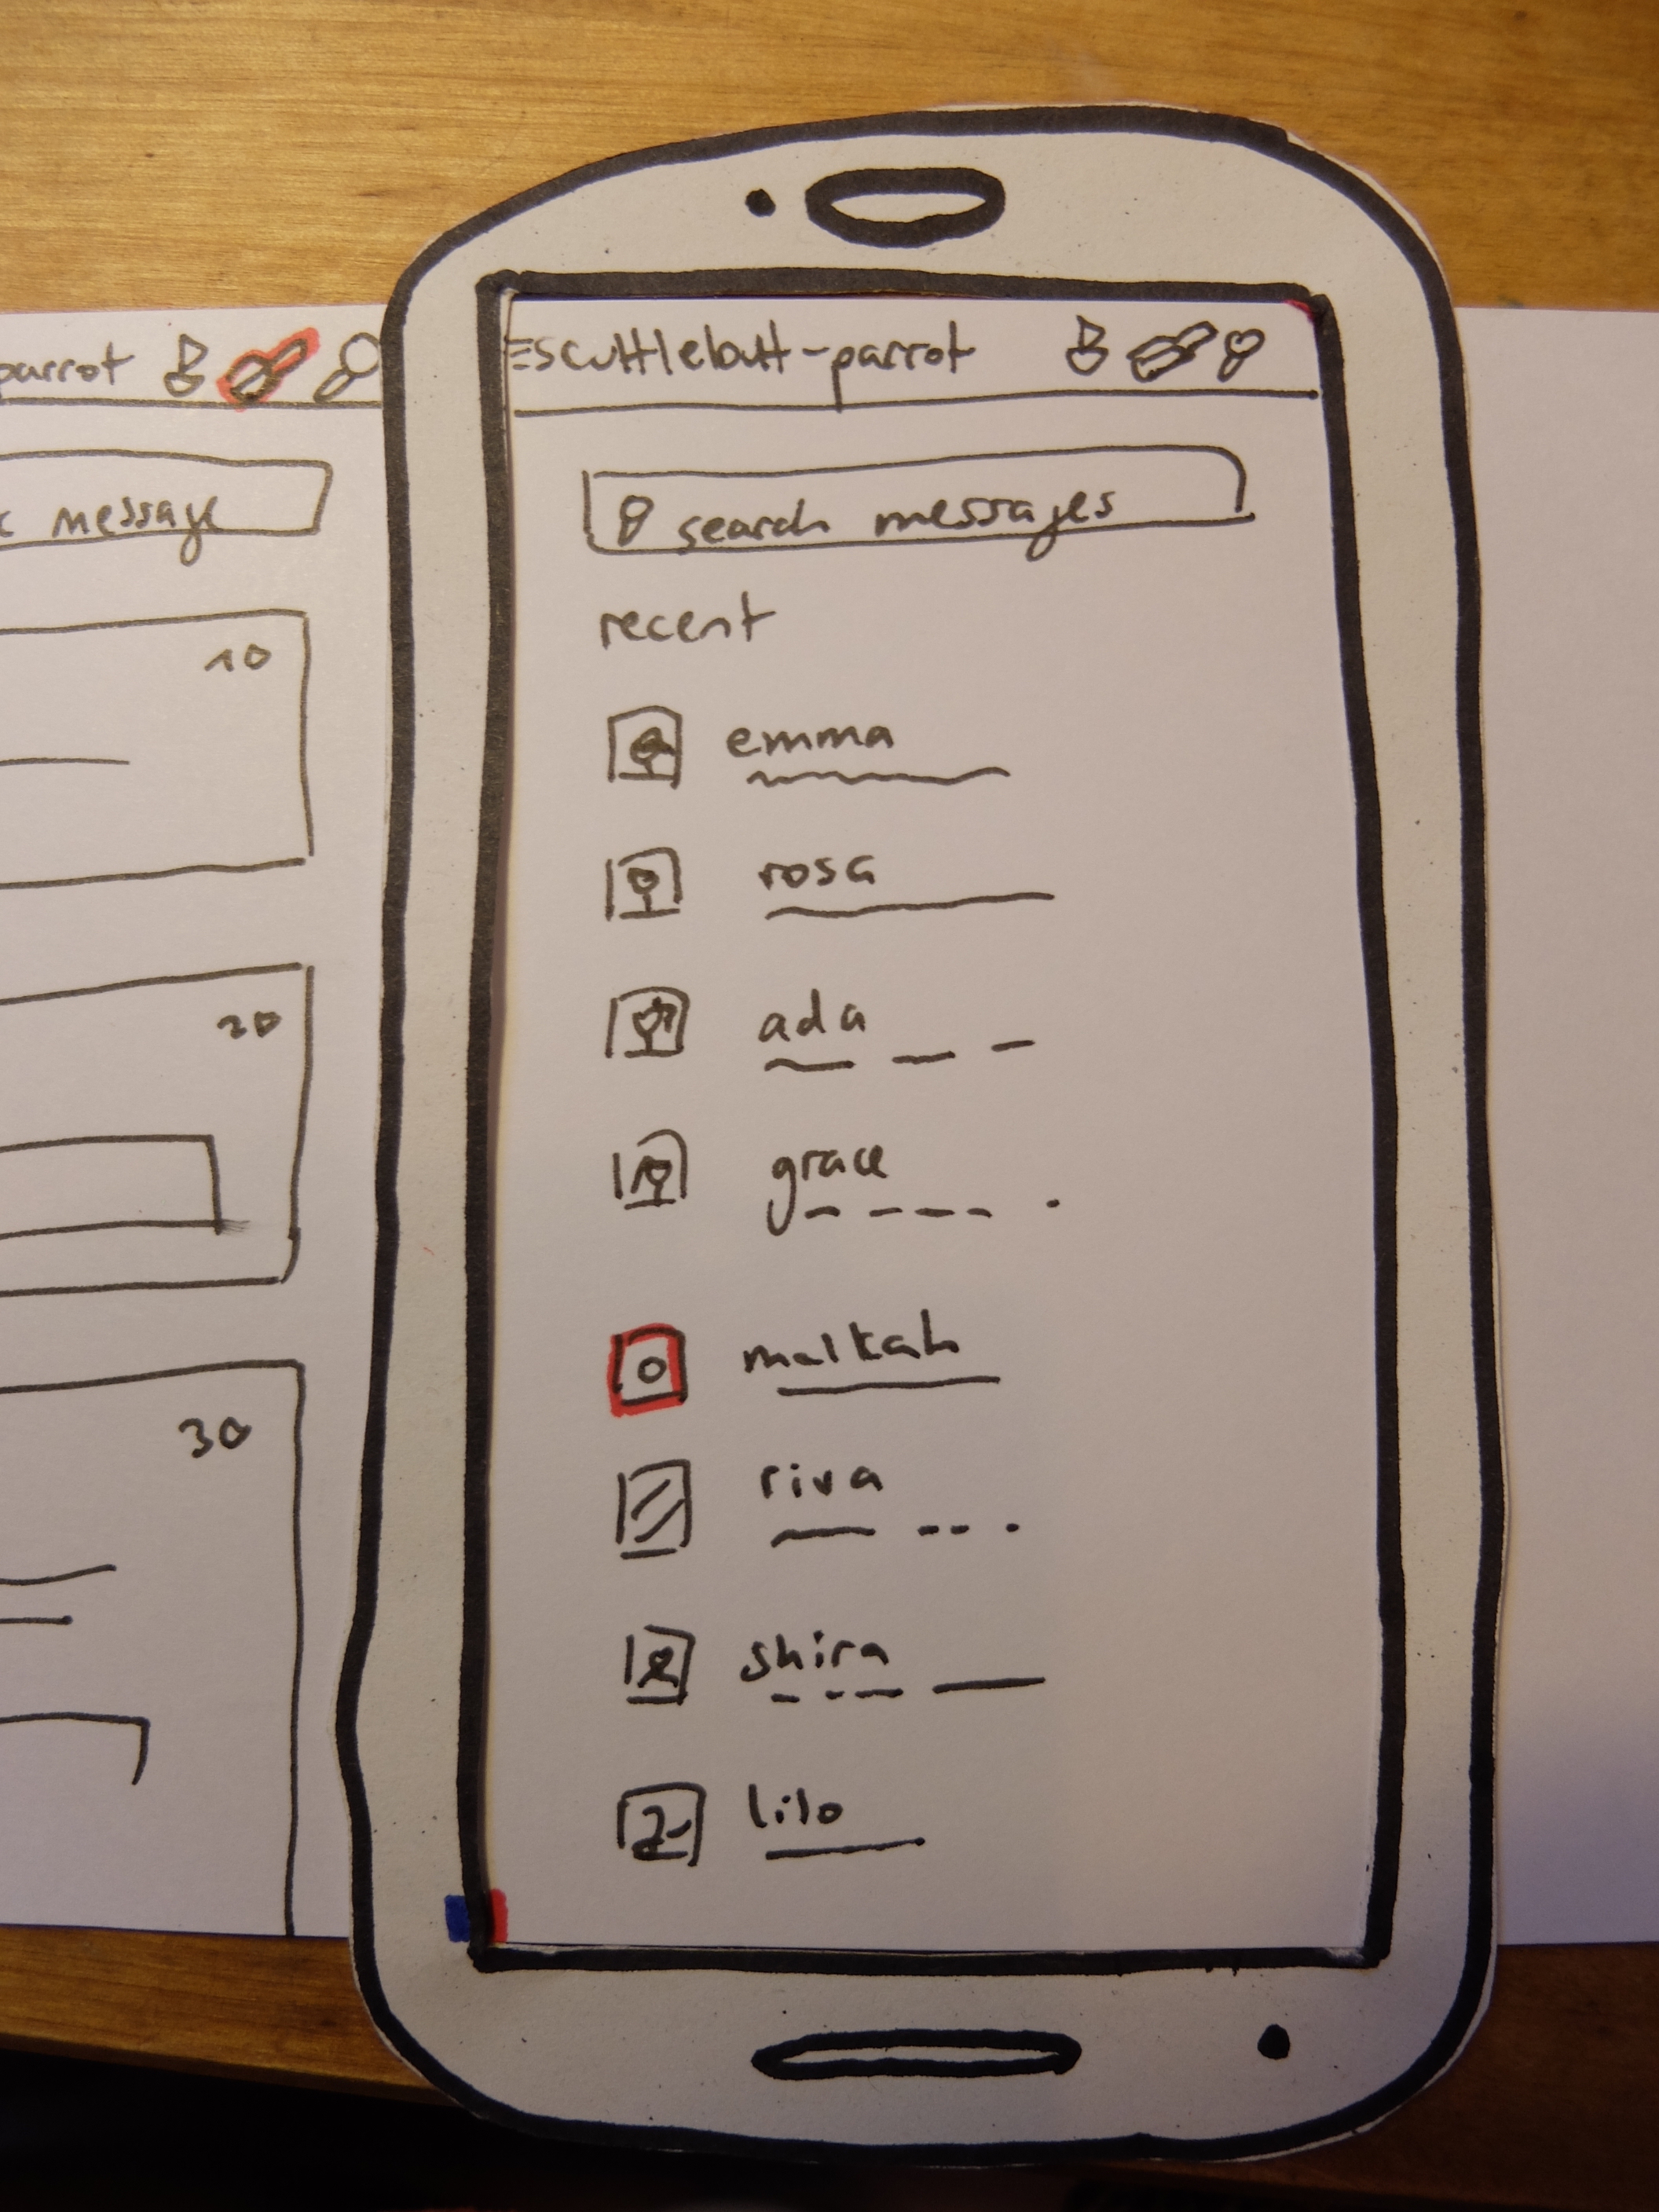 parrot
message
10
20
30
scuttlebutt-parrot
search messages
recent
emma
rosa
ada
grace
malkah
riva
shira
lilo